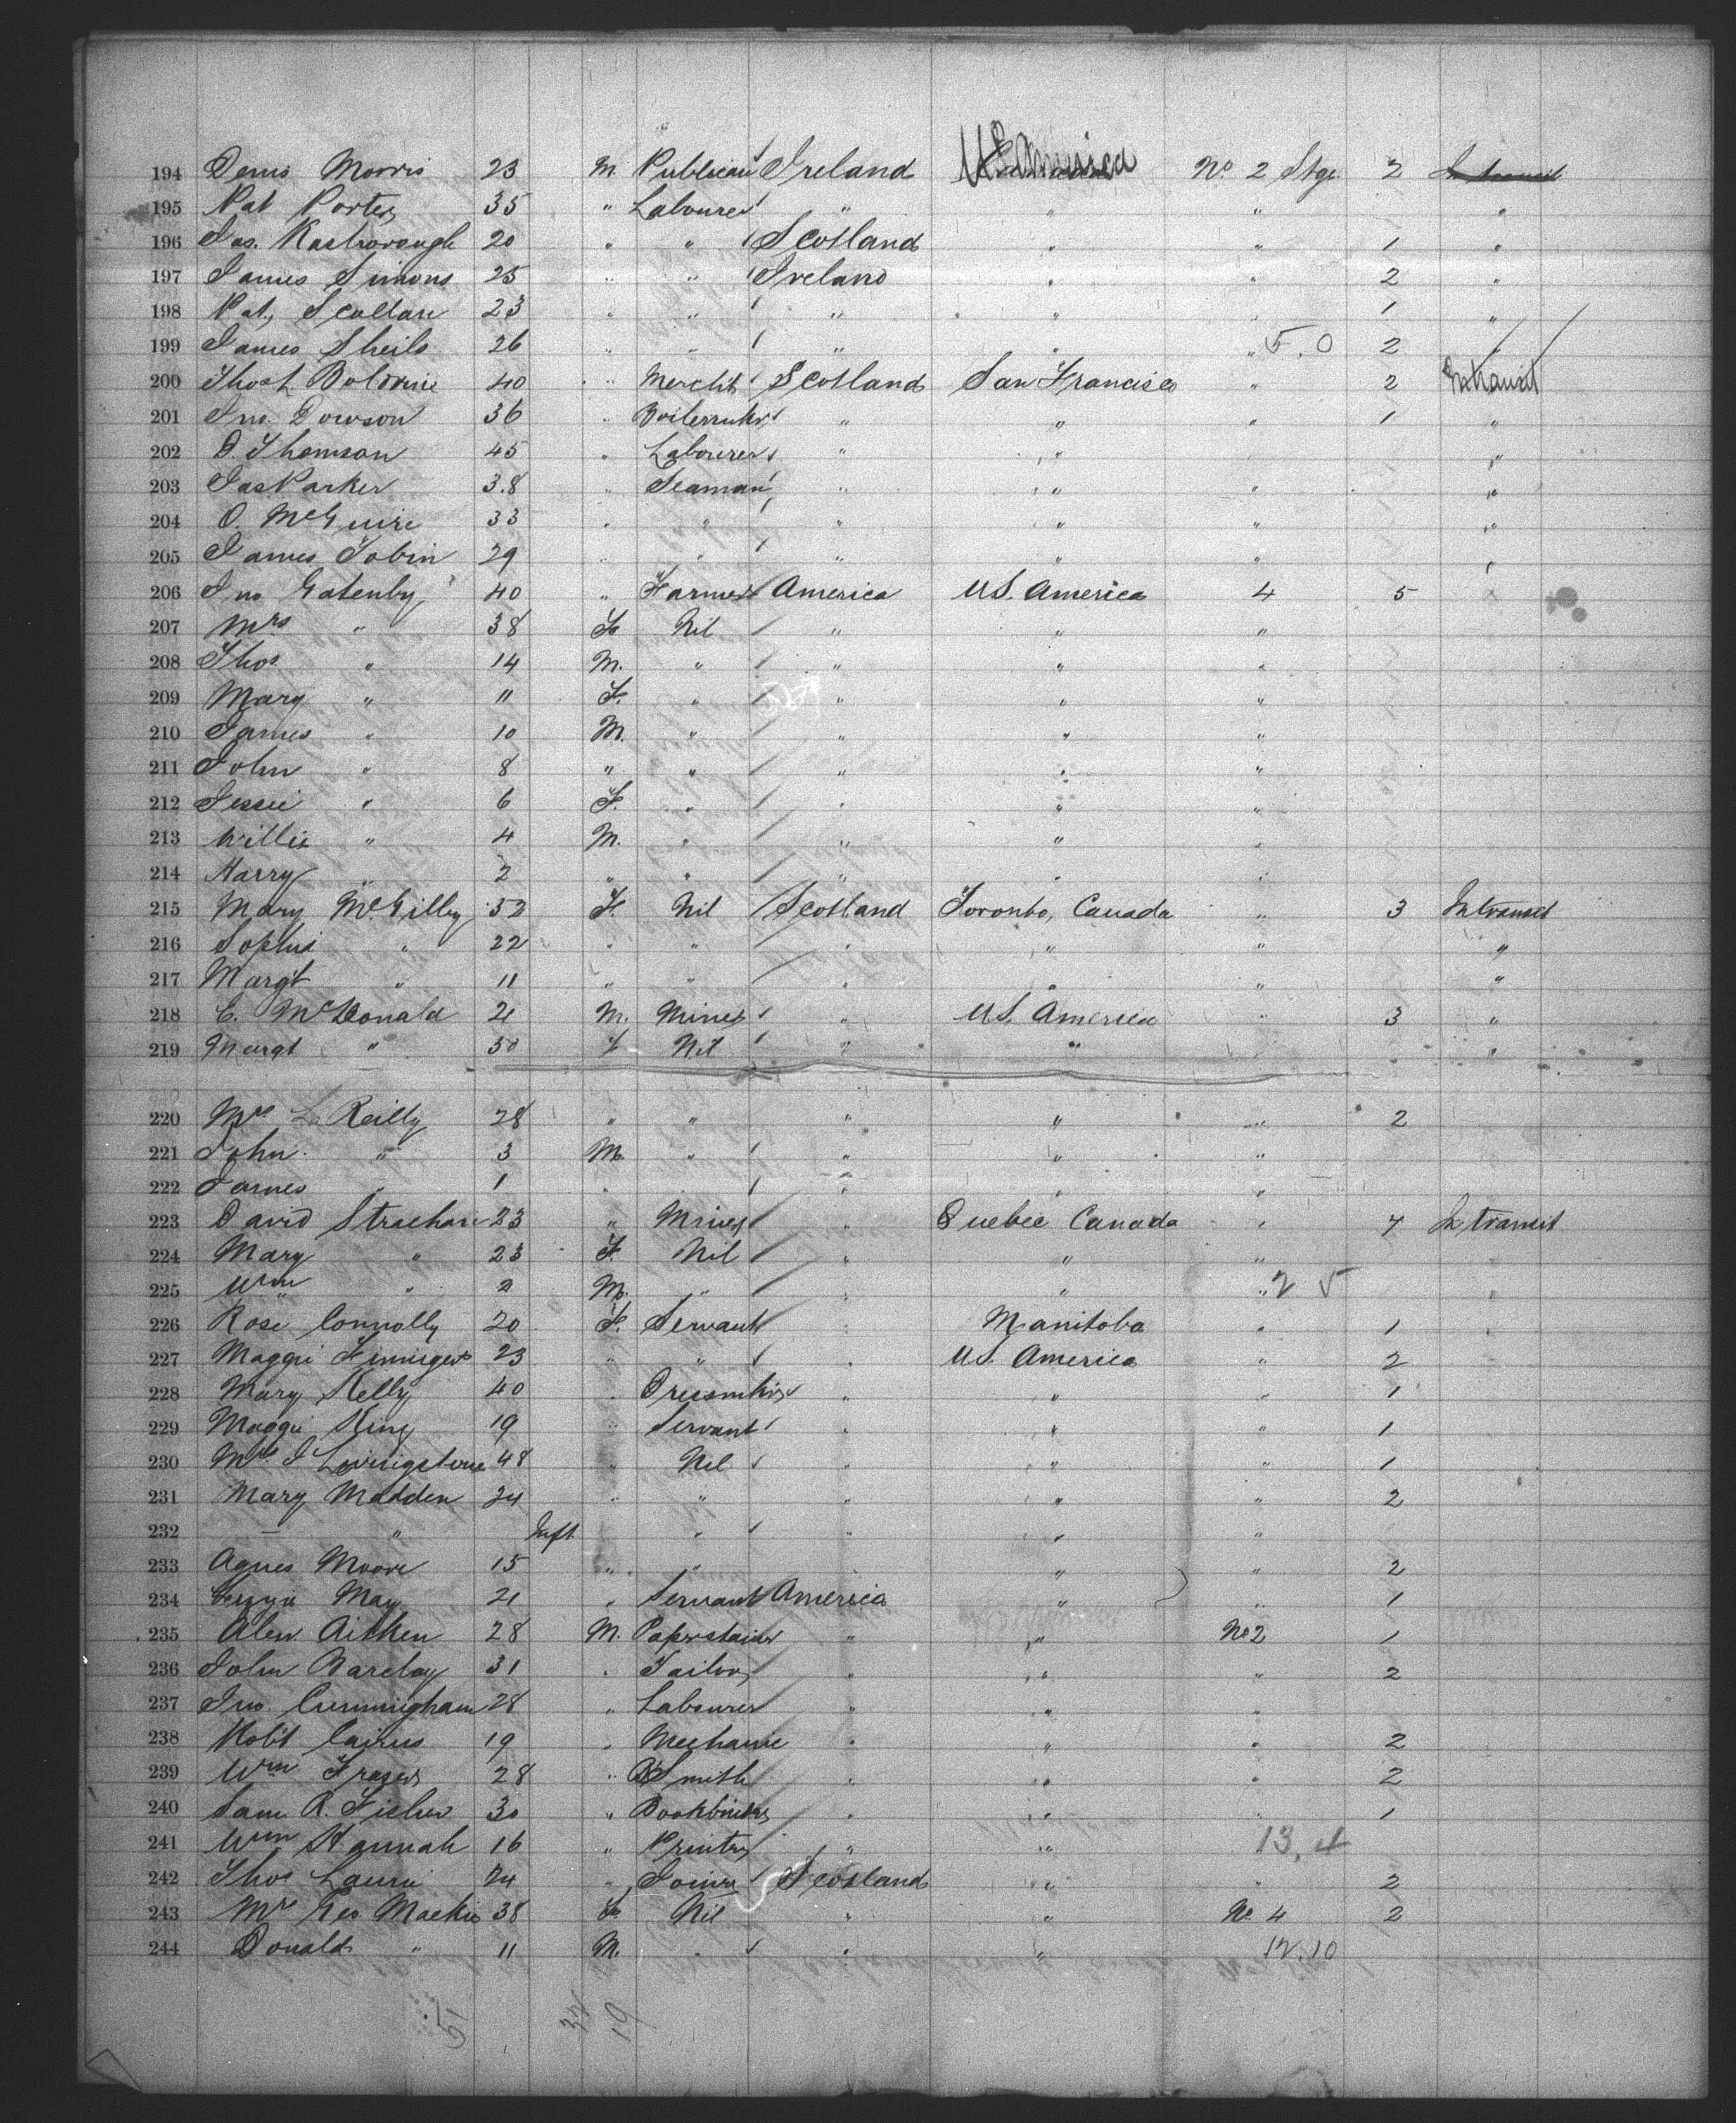 194 Denis Morris 23 M. Publican Ireland U.S. America No. 2 Stge 2 In transit
195 Pat Porter 35 " Labourer " " " "
196 Jas. 20 " " Scotland " " 1 "
197 James Simons 25 " " Ireland " " 2 "
198 Pat. Scollan 23 " " " " " 1 "
199 James Sheils 26 " " " " " 5.0 2 "
200 40 " Mercht Scotland San Francisco " 2 In transit
201 Jno. Dowson 36 " " " " 1 "
202 D. Thomson 45 " Labourer " " "
203 Jas Parker 38 " Seaman " " " "
204 O. McGuire 33 " " " " " "
205 James Tobin 29 " " " " "
206 Jno Gatenby 40 " Farmer America U.S. America 4 5
207 Mrs " 38 F. Nil " " "
208 Thos " 14 M. " " " "
209 Mary " 11 F. " " " "
210 James " 10 M. " " " "
211 John " 8 " " " " "
212 Jessie " 6 F. " " " "
213 Willie " 4 M. " " " "
214 Harry " 2 " " " " "
215 Mary McGilley 52 F. Nil Scotland Toronto, Canada " 3 In transit
216 Sophia " 22 " " " " " "
217 Margt " 11 " " " " " "
218 E. McDonald 21 M. Miner " U.S. America " 3 "
219 Margt " 50 F Nil " " "
220 Mrs Reilly 28 " " " " " 2
221 John " 3 M. " " " "
222 James " 1 " " " " "
223 David Strachan 23 " Miner " Quebec Canada " 4 In transit
224 Mary " 23 F. Nil " " "
225 Wm " 2 M. " " " " 2 5 "
226 Rose Connolly 20 F. Servant " Manitoba " 1 "
227 Maggie 23 " " " U.S. America " 2
228 Mary Kelly 40 " Dressmkr " " " 1
229 Maggie King 19 " Servant " " " 1
230 Mrs J Livingstone 48 " Nil " " " 1
231 Mary Madden 24 " " " " " 2
232 — " Inft. " " " "
233 Agnes Moore 15 " " " " 2
234 May 21 " Servant America " " 1
235 Alexr. Aitken 28 M. Paperstainer " " No 2 1
236 John Barclay 31 " Tailor " " " 2
237 Jno. Cunningham 28 " Labourer " " "
238 Robt Cairns 19 " Mechanic " " " 2
239 Wm Fraser 28 " BSmith " " " 2
240 Saml R. Fisher 30 " Bookbinder " " " 1
241 Wm Hannah 16 " Printer " " 13.4
242 Thos Laurie 24 " Joiner Scotland " " 2
243 Mrs Geo Mackie 38 F. Nil " " No. 4 2
244 Donald " 11 M. " " " 12.10
51 32 19